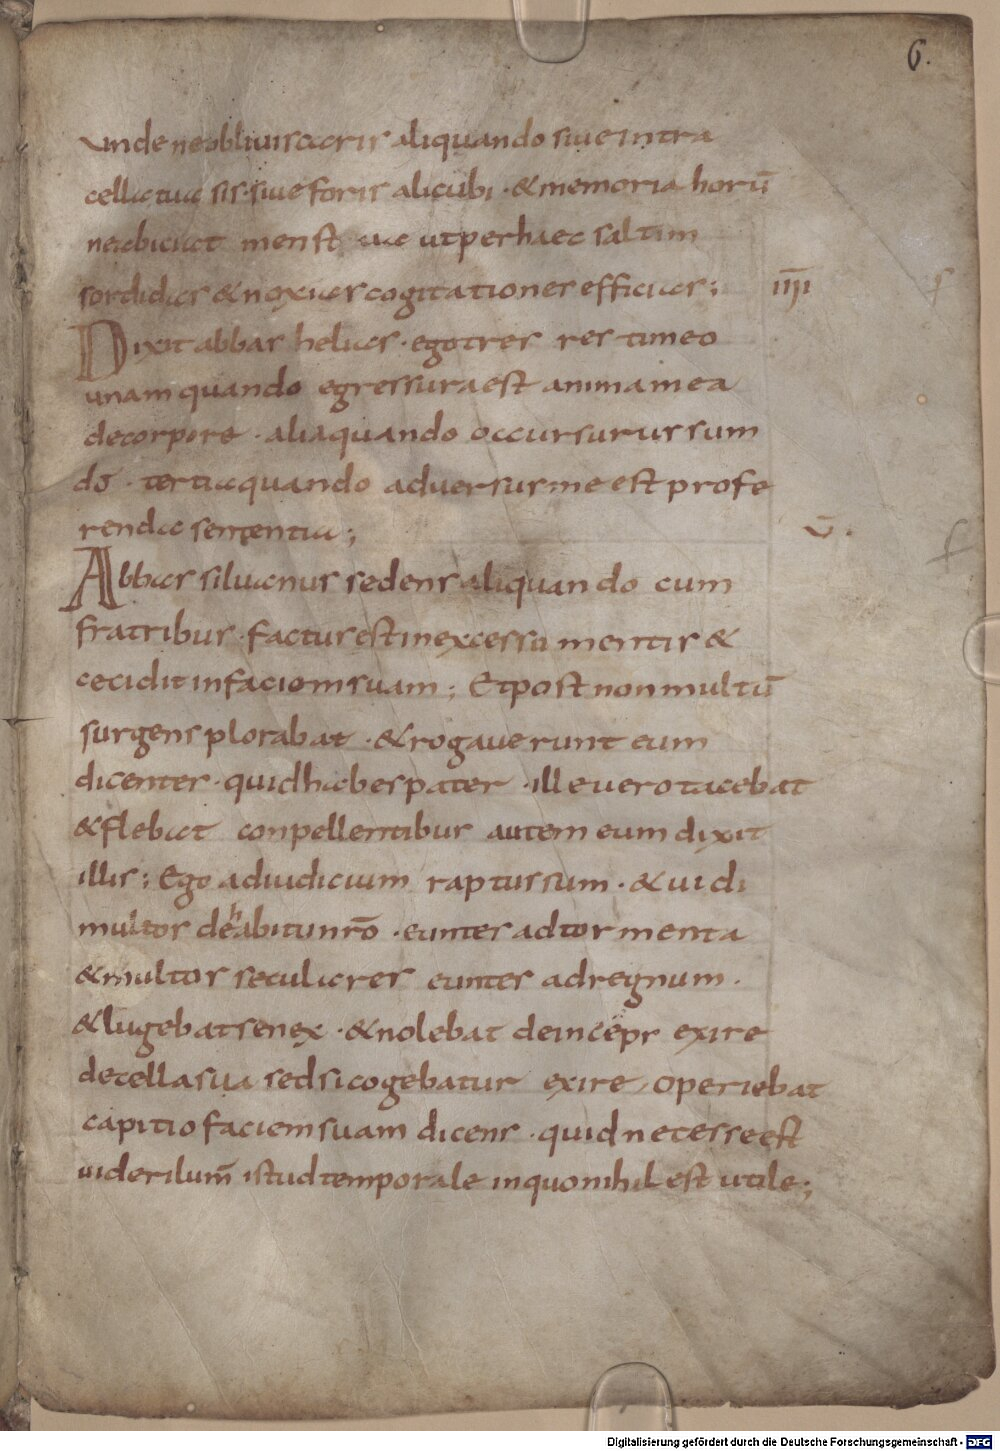 6.
unde ne obliuiscaeris aliquando siue intra
cella tua sis· siue foris alicubi · & memoria horū
ne abiciat mens tua ut per haec saltim
sordidas & noxias cogitationes efficias; īīīī
Dixit abbas helias · ego tres res timeo
unam quando egressura est anima mea
de corpore · alia quando occursurus sum
dō · tertia quando aduersus me est profe
renda sententia;
v̄.
Abbas siluanus sedens aliquando cum
fratribus · factus est in excessu mentis &
cecidit in faciem suam; Et post non multū
surgens plorabat · & rogauerunt eum
dicentes · quid habes pater · ille uero tacebat
& flebat conpellentibus autem eum dixit
illis; Ego ad iudicium raptus sum · & uidi
multos de habitu nr̄o · euntes ad tormenta
& multos seculares euntes ad regnum ·
& lugebat senex · & nolebat deinceps exire
de cella sua sed si cogebatur exire, operiebat
capitio faciem suam dicens · quid necesse est
uideri lum̄ istud temporale in quo nihil est utile;
Digitalisierung gefördert durch die Deutsche Forschungsgemeinschaft - DFG